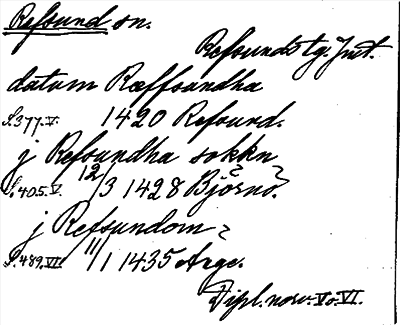 Refsund sn.
Refsunds tg. Jmt.
datum Ræffsundha
S. 377. V. 1420 Refsund.
j Refsundha sokkn
S. 405. V. 12/3 1428 Björnö.
j Refsundom
S. 489. VI. 11/1 1435 Arge.
Dipl. norv. V o. VI.